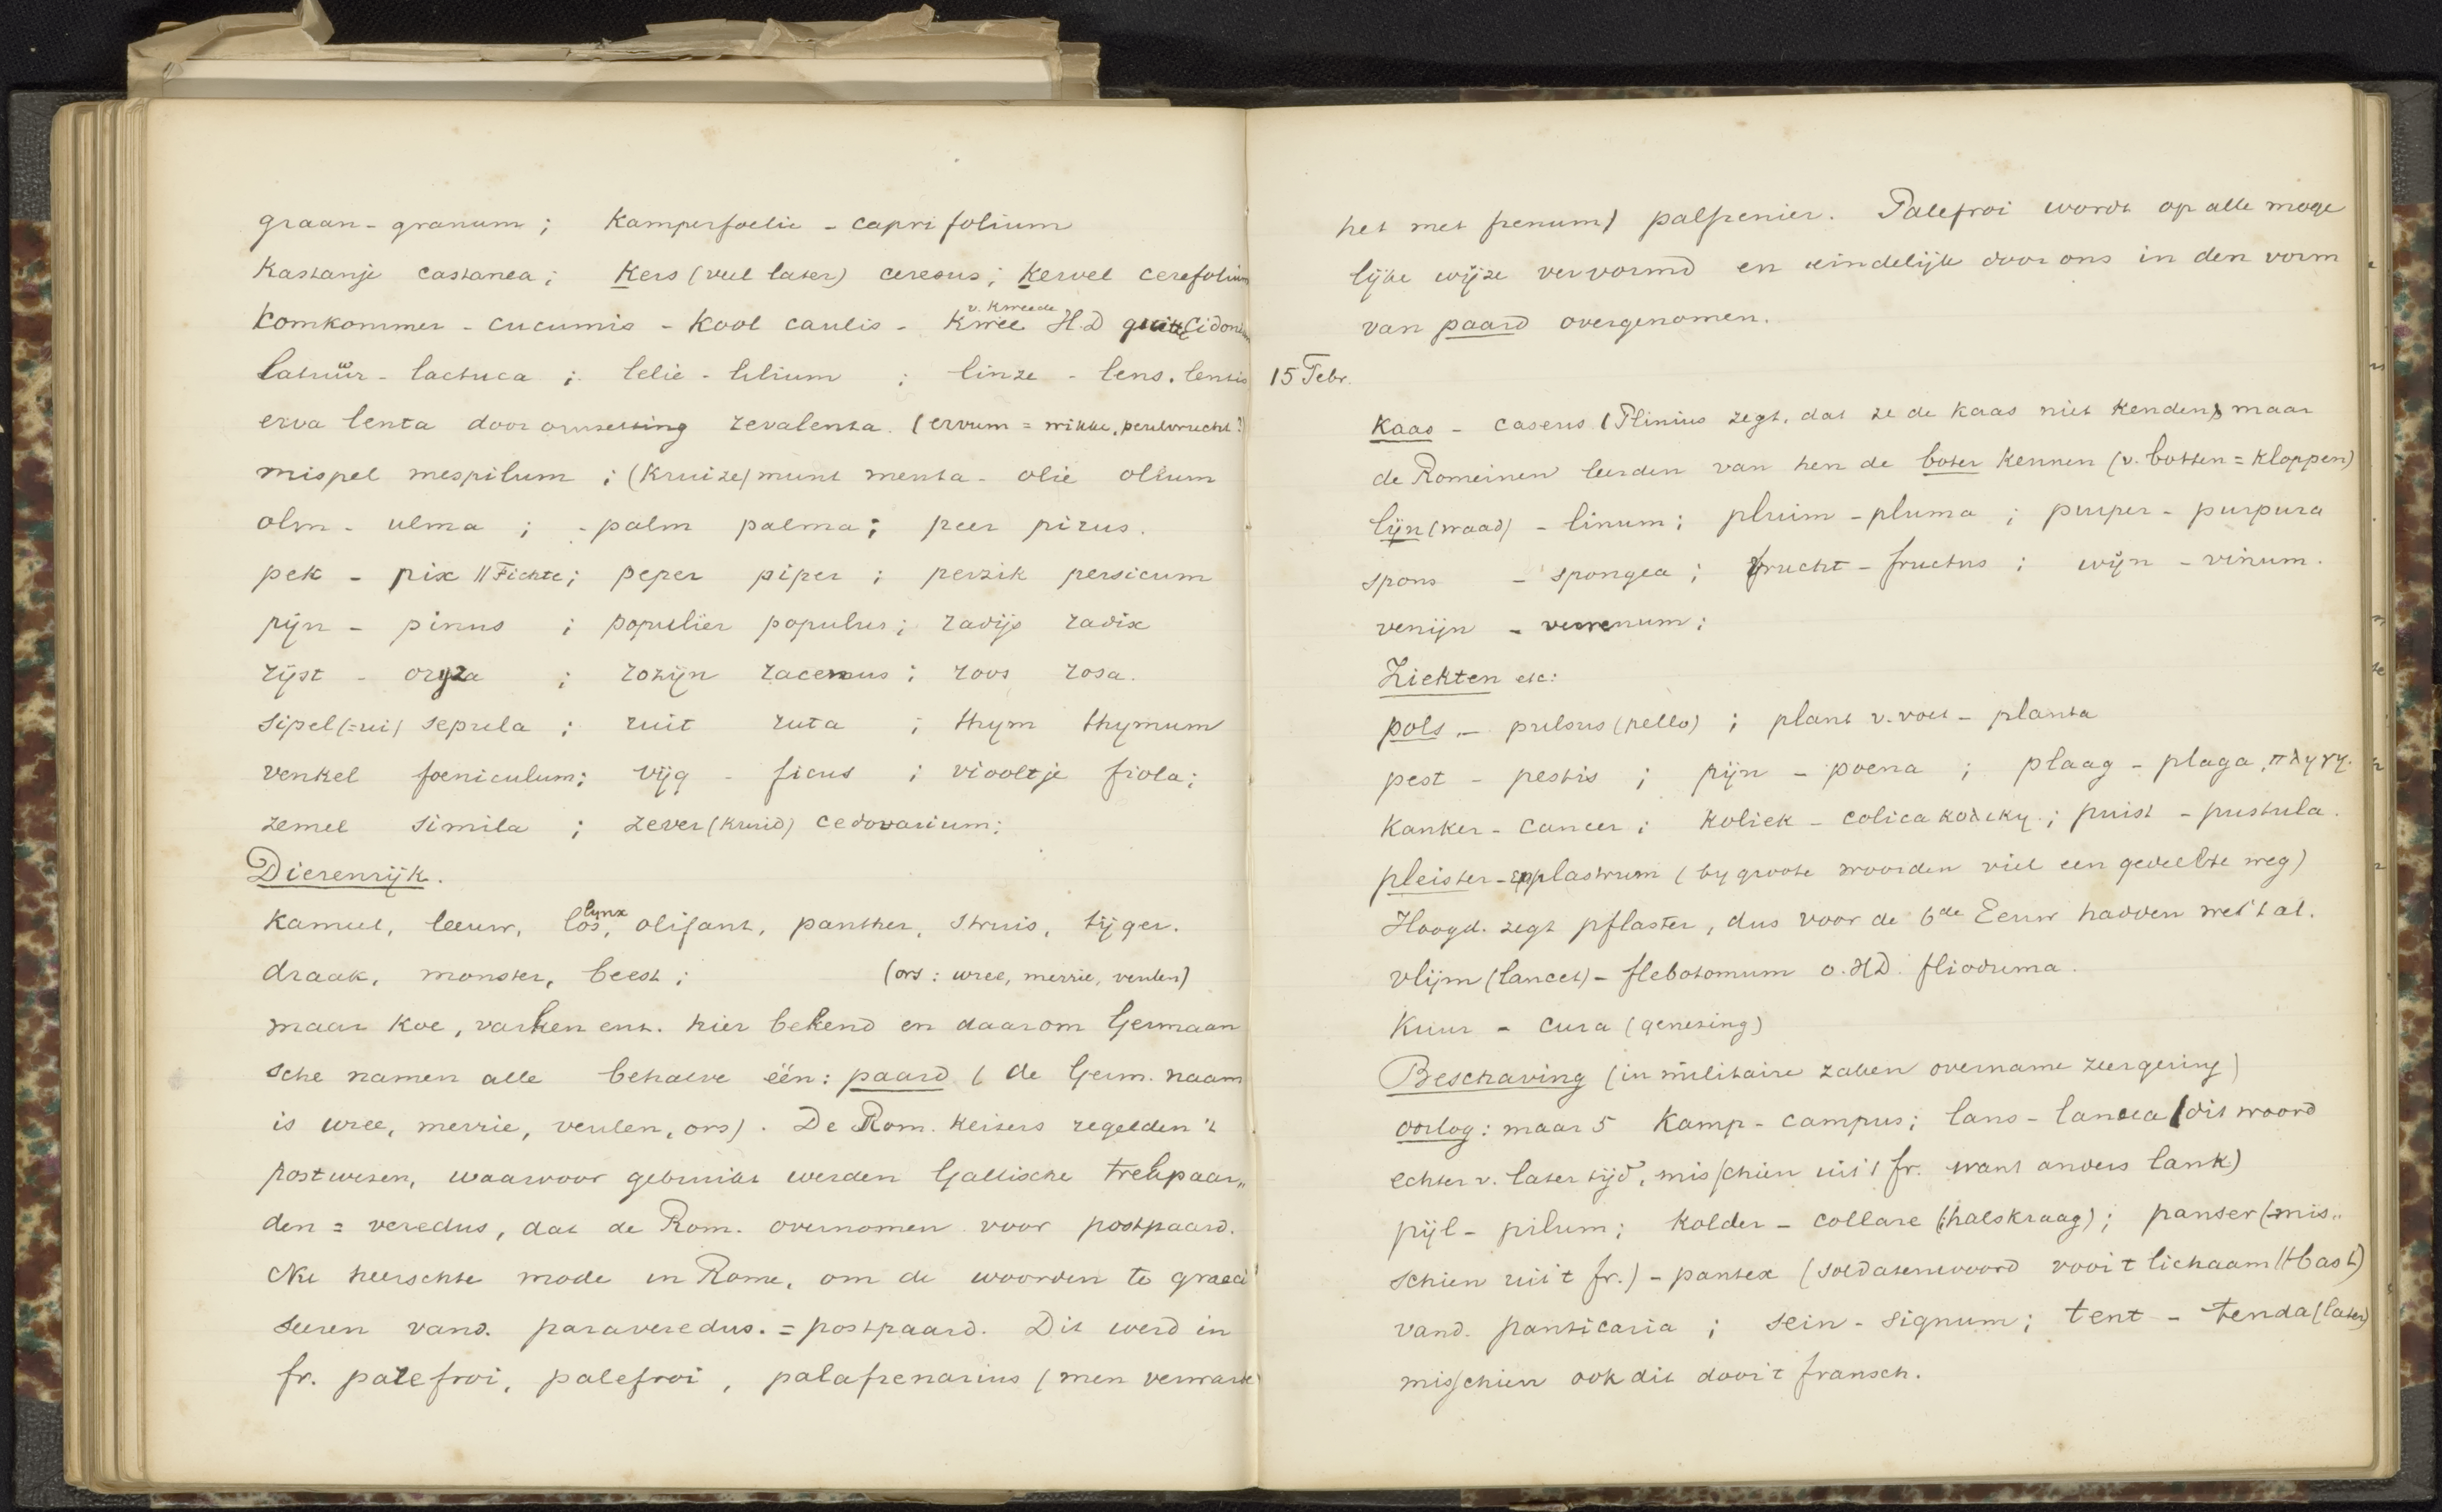 graan - granum ; kamperfoelie - caprifolium
kastanje castanea ; kers (veel later) cerasus ; kervel cerefolium
komkommer - cucumis - kool caulis - kwee v. kweede H.D quitte Cidonea
latuw - lactuca ; lelie - lilium ; linze - lens, lentis
erva lenta door omzetting revalenta. (ervum = wikke, peulvrucht?)
mispel mespilum ; (kruize)munt menta - olie olium
olm - ulma ; - palm palma ; peer pirus.
pek - pix // Fichte ; peper piper ; perzik persicum
pijn - pinus ; populier populus ; radijs radix
rijst - oryza ; rozijn racemus ; roos rosa.
sipel (= ui) sepula ; ruit ruta ; thym thymum
venkel foeniculum ; vijg - ficus ; viooltje fiola ;
zemel simila ; zever (kruid) cedovarium ;
Dierenrijk.
kameel, leeuw, los, lynx olifant, panther, struis, tijger.
draak, monster, beest ; (ors : wree, merrie, veulen)
maar koe, varken enz. hier bekend en daarom Germaan
sche namen alle behalve één : paard ( de Germ. naam
is wree, merrie, veulen, ors). De Rom. keizers regelden 't
postwezen, waarvoor gebruikt werden Gallische trekpaar„
den = veredus, dat de Rom. overnomen voor postpaard.
Nu heerschte mode in Rome, om de woorden te graeci
seeren vand. paraveredus. = postpaard. Dit werd in
fr. parefroi, palefroi, palafrenarius (men verwarde
het met frenum) palfrenier. Palefroi wordt op alle moge
lijke wijze vervormd en eindelijk door ons in den vorm
van paard overgenomen.
15 Febr.
Kaas - caseus (Plinius zegt, dat ze de kaas niet kenden) maar
de Romeinen leerden van hen de boter kennen (v. botten = kloppen)
lijn (waad) - linum ; pluim - pluma ; purper - purpura
spons - spongea ; vrucht - fructus ; wijn - vinum.
venijn - venenum ;
Ziekten etc :
pols - pulsus (pello) ; plant v. voet - planta
pest - pestis ; pijn - poena ; plaag - plaga, πληγη.
kanker - cancer ; koliek - colica κολικη ; puist - pustula.
pleister - emplastrum (by groote woorden viel een gedeelte weg)
Hoogd. zegt pflaster, dus voor de 6de Eeuw hadden we 't al.
vlijm (lancet) - flebotomum o.HD. flioduma.
Kuur - cura (genezing)
Beschaving (in militaire zaken overname zeer gering)
oorlog : maar 5 kamp - campus ; lans - lancea (dit woord
echter v. later tijd, misschien uit 't fr. want anders lank)
pijl - pilum ; kolder - collare (halskraag) ; panser (mis„
schien uit 't fr.) - pantex (soldatenwoord voor 't lichaam // bast)
vand. panticaria ; sein - signum ; tent - tenda (later)
misschien ook dit door 't fransch.